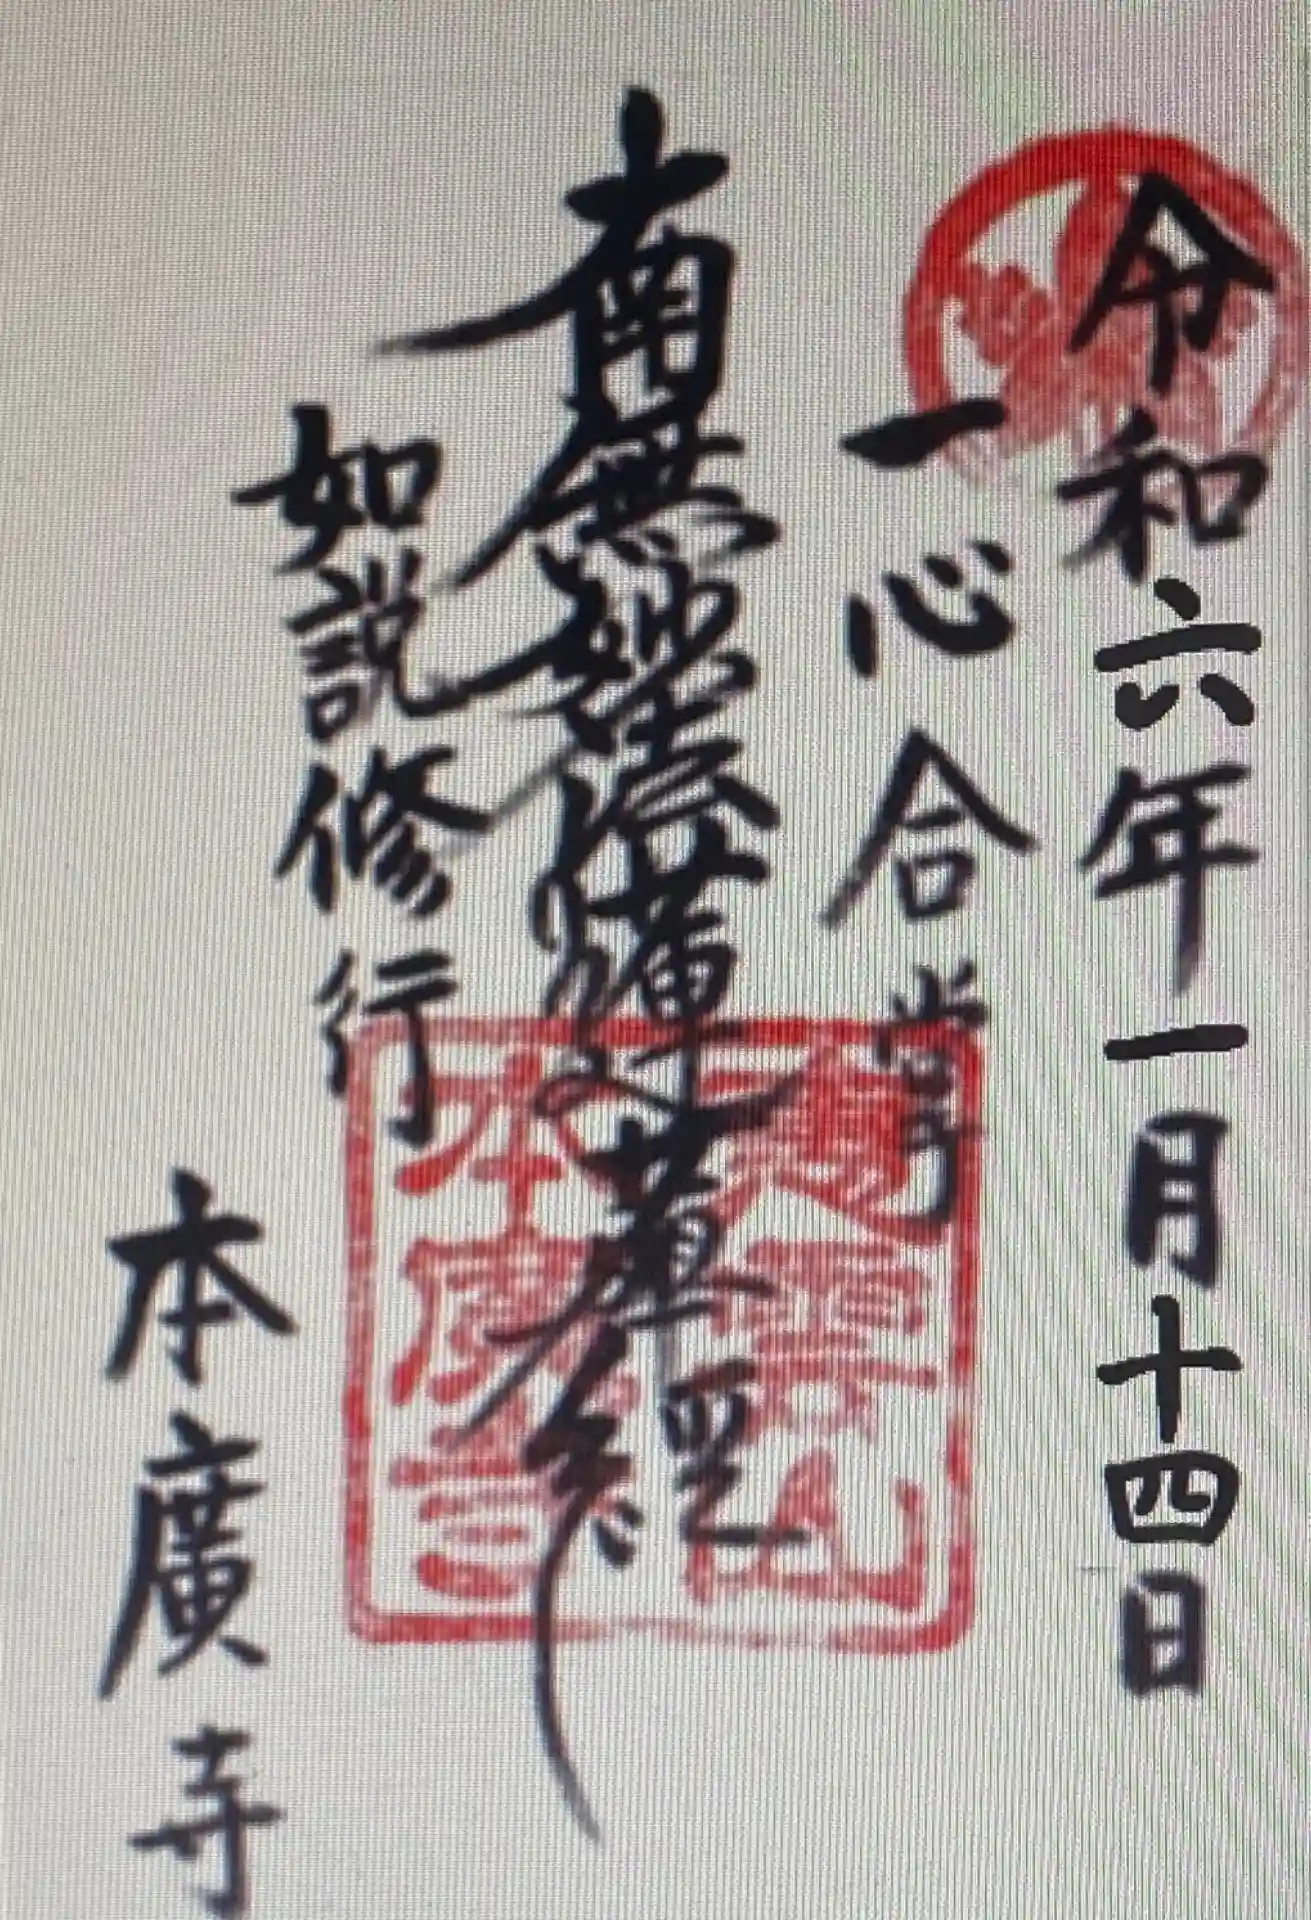 令和六年一月十四日
一心合掌
南無妙法蓮華経
如説修行
本廣寺
本廣寺